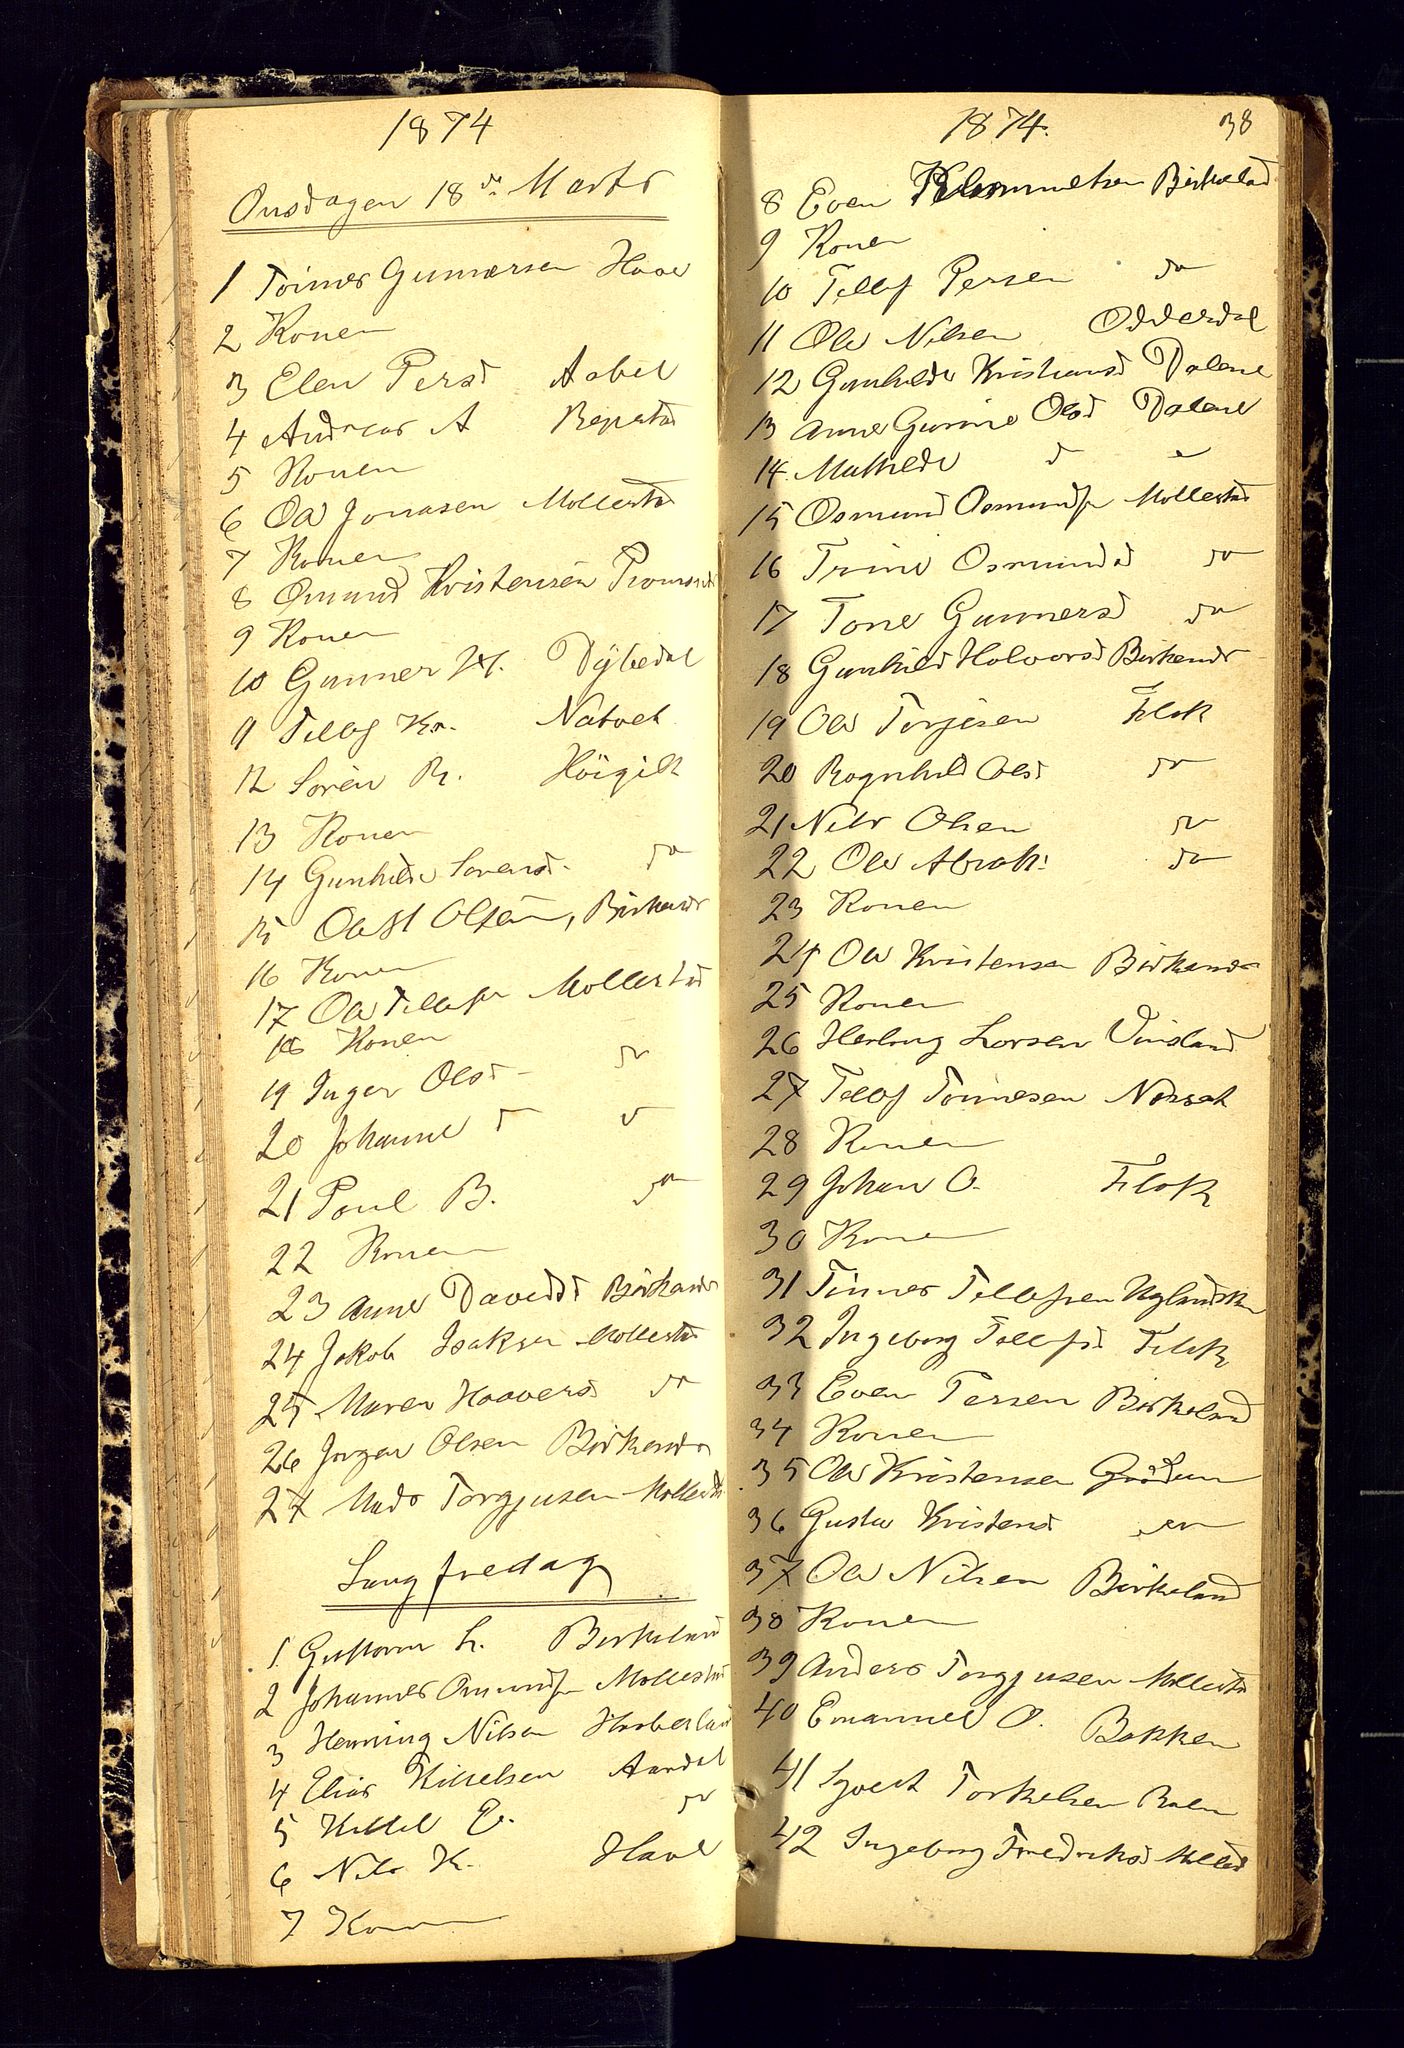 1874
Onsdagen 18de Marts
1 Tønnes Gunnersen Haae
2 Konen
3 Elen Persd Aabel
4 Andreas A Repstad
5 Konen
6 Ola Jonasen Mollestad
7 Konen
8 Omund Kristensen
9 Konen
10 Gunner H. Dybedal
9 Tellef Kr. Natvet
12 Søren R. Høigilt
13 Konen
14 Gunhilde Sørensd. do
15 Ola Olsen, Birkenes
16 Konen
17 Ola Tellefsn Mollestad
18 Konen
19 Inger Olsd do
20 Johanne d do
21 Poul B. do
22 Konen
23 Anne Davidsd Birkenes
24 Jakob Isaksen Mollestad
25 Maren Haaversd do
26 Jørgen Olsen Birkenes
27 Mads Torgjusen Mollestad
Langfredag
1. Gustav L. Birkeland
2 Johannes Omundsn Mollestad
3 Henning Nilsen Haaberland
4 Elias Kittelsen Aardal
5 Kittel E. do
6 Nils K. Haae
7 Konen
1874. 38
8 Even Birkeland
9 Konen
10 Tellef Persen do
11 Ole Nilsen Odderdal
12 Gunhilde Kristiansd Dalene
13 Anne Gurine Olsd Dalene
14. Mathilde d
15 Osmund Osmundsn Mollestad
16 Trine Osmundsd do
17 Tone Gunnersd do
18 Gunhild Halvorsd Birkenes
19 Ole Torjesen Flak
20 Ragnhild Olsd do
21 Nils Olsen do
22 Ole Abrah: do
23 Konen
24 Ole Kristensen Birkenes
25 Konen
26 Herlaug Larsen Vinsland
27 Tellef Tønnesen Natvet
28 Konen
29 Johan O. Flak
30 Konen
31 Tønnes Tellefsen
32 Ingeborg Tellefsd Flak
33 Even Persen Birkeland
34 Konen
35 Ole Kristensen
36 Gustav Kristensd do
37 Ole Nilsen Birkeland
38 Konen
39 Anders Torgjusen Mollestad
40 Emanuel O. Bakken
41 Torkelsen
42 Ingeborg Fredriksd Mollestad